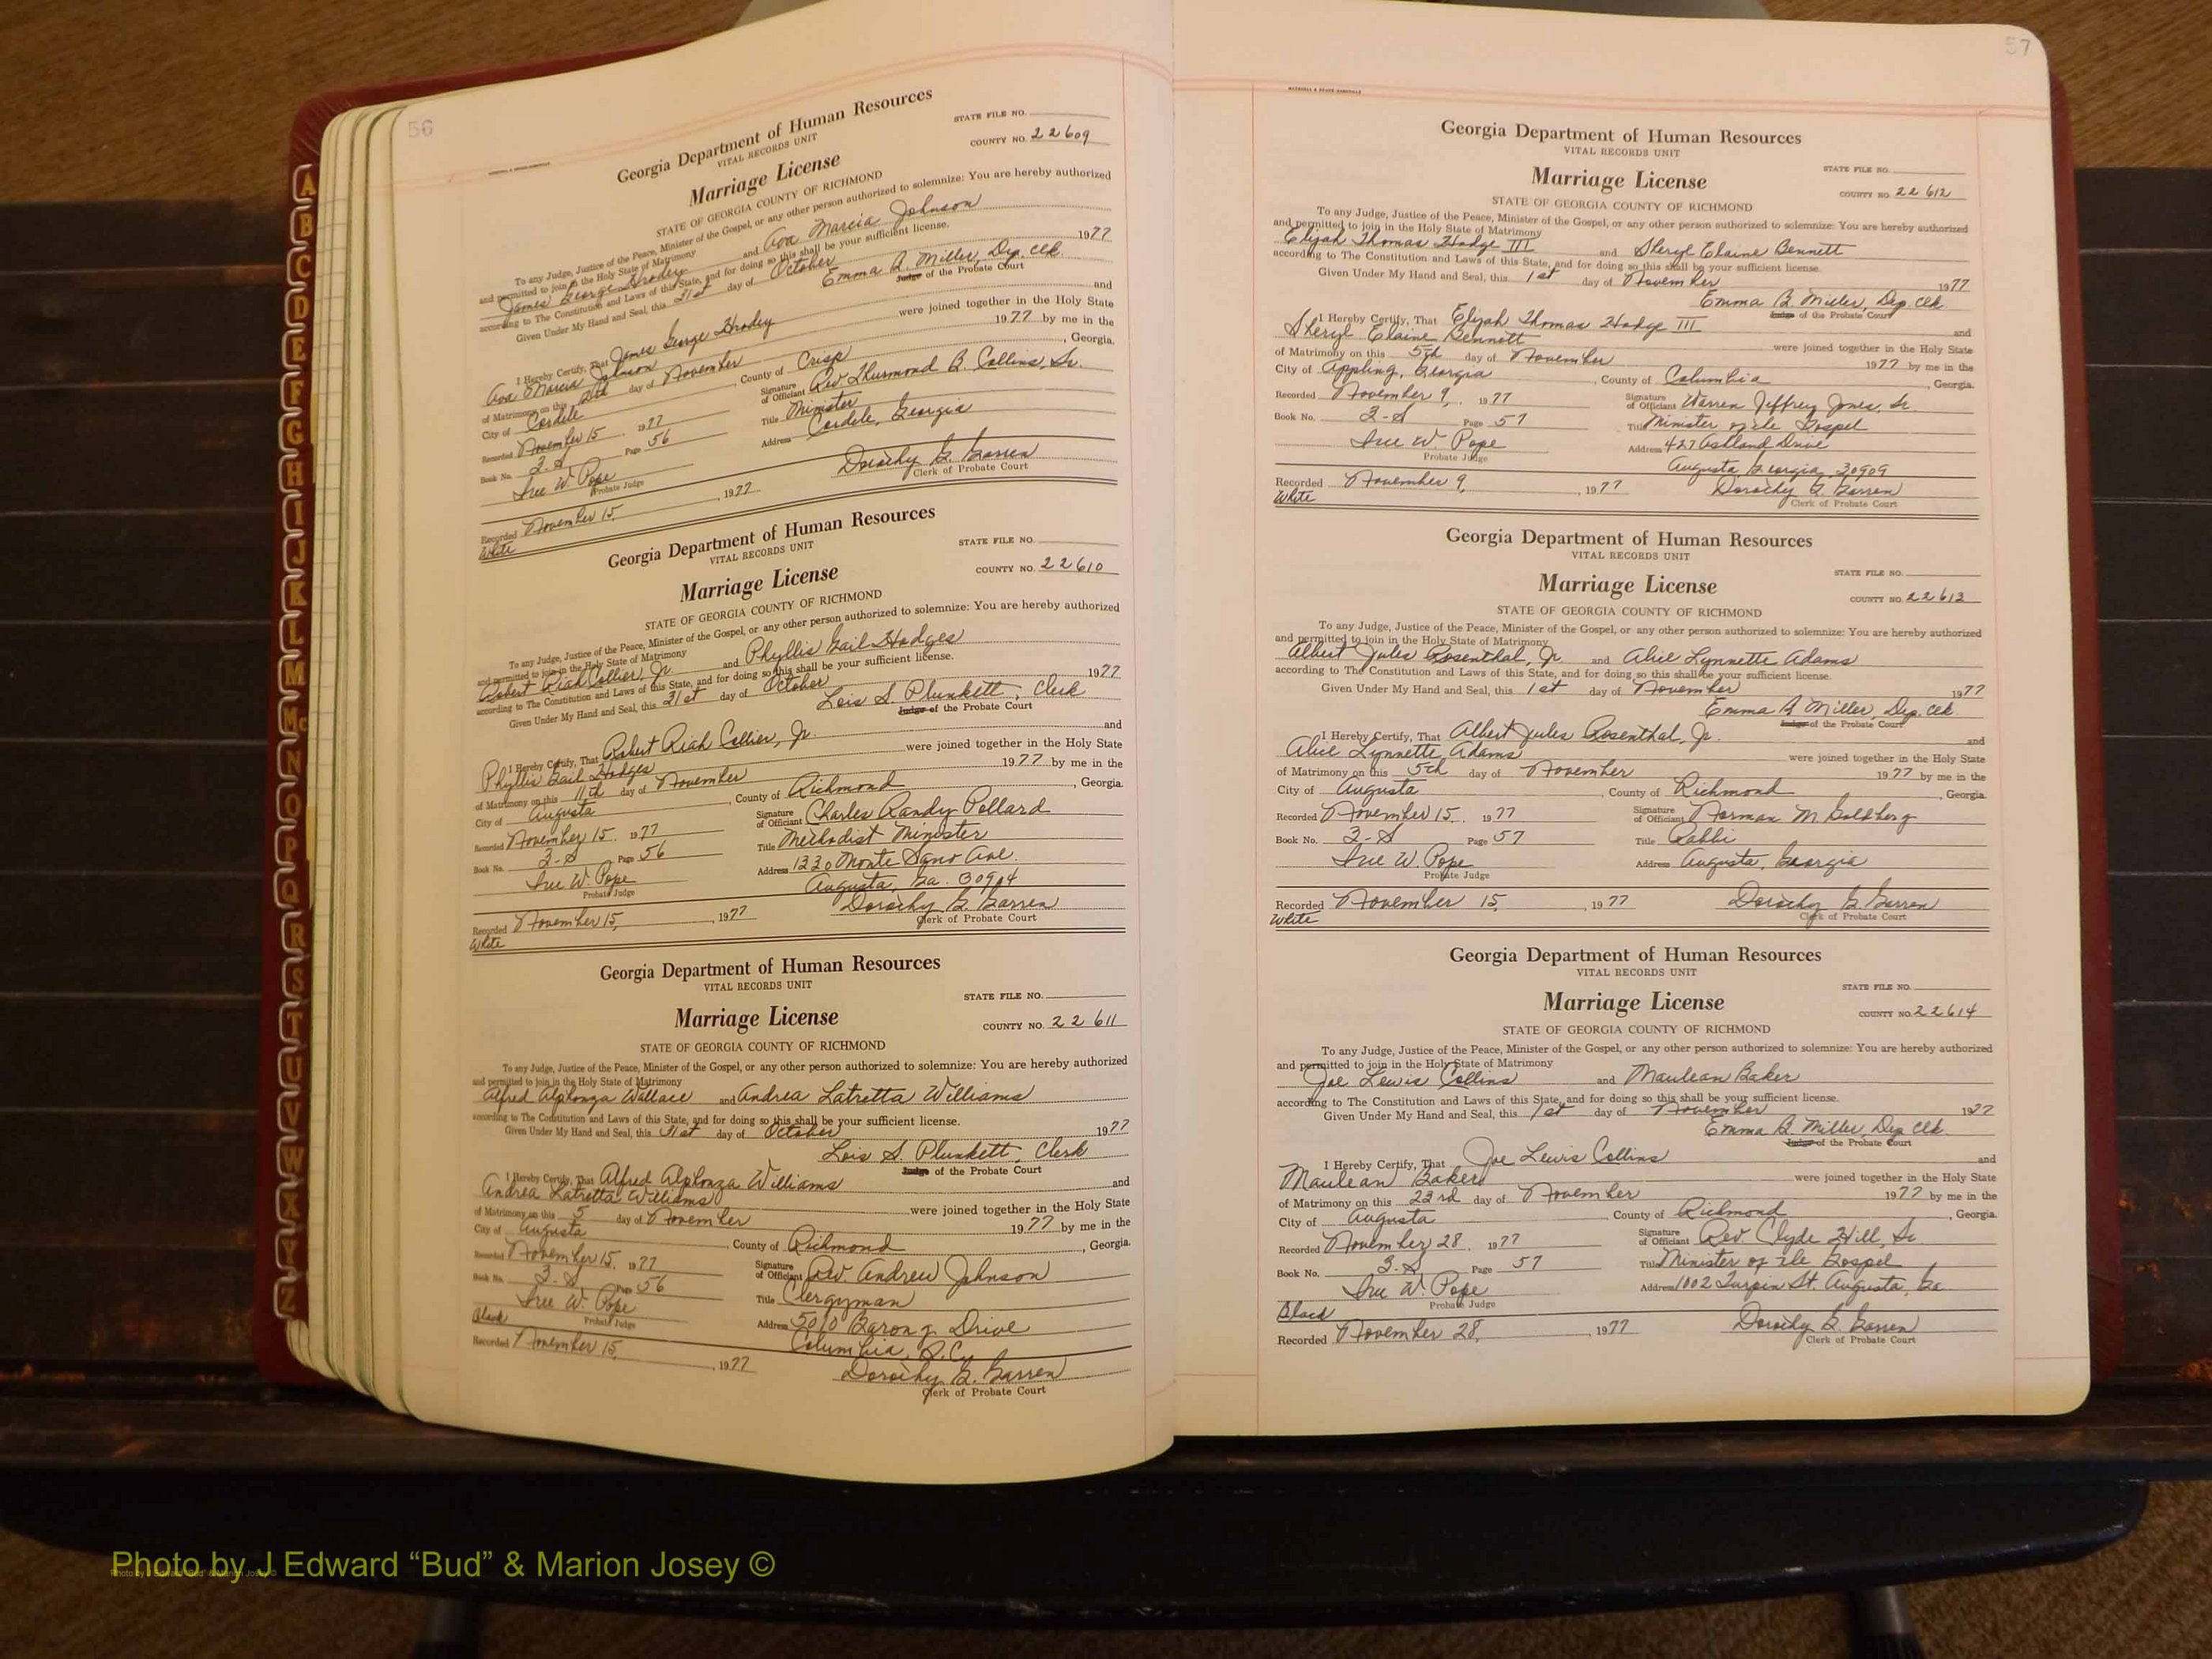 56
Georgia Department of Human Resources
VITAL RECORDS UNIT
STATE FILE NO.
COUNTY NO. 22609
Marriage License
STATE OF GEORGIA COUNTY OF RICHMOND
To any Judge, Justice of the Peace, Minister of the Gospel, or any other person authorized to solemnize: You are hereby authorized
and permitted to join in the Holy State of Matrimony
James George and Ava Marcia Johnson
according to The Constitution and Laws of this State, and for doing so this shall be your sufficient license.
Given Under My Hand and Seal, this 31st day of October 1977
Emma B. Miller, Dep. Clk.
Judge of the Probate Court
I Hereby Certify, That James George and
Ava Marcia Johnson were joined together in the Holy State
of Matrimony on this day of November 1977 by me in the
City of Cordele, County of Crisp, Georgia.
Recorded November 15, 1977 Signature of Officiant Rev Thurmond B. Collins, Sr.
Book No. 3-S Page 56 Title Minister
Iree W. Pope Address Cordele, Georgia
Probate Judge
Dorothy G. Garren
Clerk of Probate Court
Recorded November 15, 1977
White
Georgia Department of Human Resources
VITAL RECORDS UNIT
STATE FILE NO.
COUNTY NO. 22610
Marriage License
STATE OF GEORGIA COUNTY OF RICHMOND
To any Judge, Justice of the Peace, Minister of the Gospel, or any other person authorized to solemnize: You are hereby authorized
and permitted to join in the Holy State of Matrimony
Robert Riah Collier, Jr. and Phyllis Gail Hodges
according to The Constitution and Laws of this State, and for doing so this shall be your sufficient license.
Given Under My Hand and Seal, this 31st day of October 1977
Lois S. Plunkett, Clerk
Judge of the Probate Court
I Hereby Certify, That Robert Riah Collier, Jr. and
Phyllis Gail Hodges were joined together in the Holy State
of Matrimony on this 11th day of November 1977 by me in the
City of Augusta, County of Richmond, Georgia.
Recorded November 15, 1977 Signature of Officiant Charles Randy Pollard
Book No. 3-S Page 56 Title Methodist Minister
Iree W. Pope Address 1330 Monte Sano Ave.
Probate Judge Augusta, Ga. 30904
Dorothy G. Garren
Clerk of Probate Court
Recorded November 15, 1977
White
Georgia Department of Human Resources
VITAL RECORDS UNIT
STATE FILE NO.
COUNTY NO. 22611
Marriage License
STATE OF GEORGIA COUNTY OF RICHMOND
To any Judge, Justice of the Peace, Minister of the Gospel, or any other person authorized to solemnize: You are hereby authorized
and permitted to join in the Holy State of Matrimony
Alfred Alphonza Wallace and Andrea Latretta Williams
according to The Constitution and Laws of this State, and for doing so this shall be your sufficient license.
Given Under My Hand and Seal, this 31st day of October 1977
Lois S. Plunkett, Clerk
Judge of the Probate Court
I Hereby Certify, That Alfred Alphonza Williams and
Andrea Latretta Williams were joined together in the Holy State
of Matrimony on this 5 day of November 1977 by me in the
City of Augusta, County of Richmond, Georgia.
Recorded November 15, 1977 Signature of Officiant Rev. Andrew Johnson
Book No. 3-S Page 56 Title Clergyman
Iree W. Pope Address 5010 Drive
Probate Judge Columbia, S.C.
Black
Recorded November 15, 1977
Dorothy G. Garren
Clerk of Probate Court
57
Georgia Department of Human Resources
VITAL RECORDS UNIT
STATE FILE NO.
COUNTY NO. 22612
Marriage License
STATE OF GEORGIA COUNTY OF RICHMOND
To any Judge, Justice of the Peace, Minister of the Gospel, or any other person authorized to solemnize: You are hereby authorized
and permitted to join in the Holy State of Matrimony
Elijah Thomas Hodge III and Sheryl Elaine Bennett
according to The Constitution and Laws of this State, and for doing so this shall be your sufficient license.
Given Under My Hand and Seal, this 1st day of November 1977
Emma B. Miller, Dep. Clk.
Judge of the Probate Court
I Hereby Certify, That Elijah Thomas Hodge III and
Sheryl Elaine Bennett were joined together in the Holy State
of Matrimony on this 5th day of November 1977 by me in the
City of Appling, Georgia, County of Columbia, Georgia.
Recorded November 9, 1977 Signature of Officiant Warren Jeffrey Jones, Sr.
Book No. 3-S Page 57 Title Minister of the Gospel
Iree W. Pope Address 427 Drive
Probate Judge Augusta Georgia, 30909
Recorded November 9, 1977 Dorothy G. Garren
White Clerk of Probate Court
Georgia Department of Human Resources
VITAL RECORDS UNIT
STATE FILE NO.
COUNTY NO. 22613
Marriage License
STATE OF GEORGIA COUNTY OF RICHMOND
To any Judge, Justice of the Peace, Minister of the Gospel, or any other person authorized to solemnize: You are hereby authorized
and permitted to join in the Holy State of Matrimony
Albert Jules Rosenthal, Jr. and Alice Lynnette Adams
according to The Constitution and Laws of this State, and for doing so this shall be your sufficient license.
Given Under My Hand and Seal, this 1st day of November 1977
Emma B. Miller, Dep. Clk.
Judge of the Probate Court
I Hereby Certify, That Albert Jules Rosenthal, Jr. and
Alice Lynnette Adams were joined together in the Holy State
of Matrimony on this 5th day of November 1977 by me in the
City of Augusta, County of Richmond, Georgia.
Recorded November 15, 1977 Signature of Officiant Norman M. Goldberg
Book No. 3-S Page 57 Title Rabbi
Iree W. Pope Address Augusta, Georgia
Probate Judge
Recorded November 15, 1977 Dorothy G. Garren
White Clerk of Probate Court
Georgia Department of Human Resources
VITAL RECORDS UNIT
STATE FILE NO.
COUNTY NO. 22614
Marriage License
STATE OF GEORGIA COUNTY OF RICHMOND
To any Judge, Justice of the Peace, Minister of the Gospel, or any other person authorized to solemnize: You are hereby authorized
and permitted to join in the Holy State of Matrimony
Joe Lewis Collins and Maulean Baker
according to The Constitution and Laws of this State, and for doing so this shall be your sufficient license.
Given Under My Hand and Seal, this 1st day of November 1977
Emma B. Miller, Dep Clk.
Judge of the Probate Court
I Hereby Certify, That Joe Lewis Collins and
Maulean Baker were joined together in the Holy State
of Matrimony on this 23rd day of November 1977 by me in the
City of Augusta, County of Richmond, Georgia.
Recorded November 28, 1977 Signature of Officiant Rev Clyde Hill, Sr.
Book No. 3-S Page 57 Title Minister of the Gospel
Iree W. Pope Address 1002 Turpin St. Augusta, Ga
Probate Judge
Black
Recorded November 28, 1977 Dorothy G. Garren
Clerk of Probate Court
A
B
C
D
E
F
G
H
I
J
K
L
M
Mc
N
O
P
Q
R
S
T
U
V
W
X
Y
Z
Photo by J Edward “Bud” & Marion Josey ©
Photo by J Edward "Bud" & Marion Josey ©